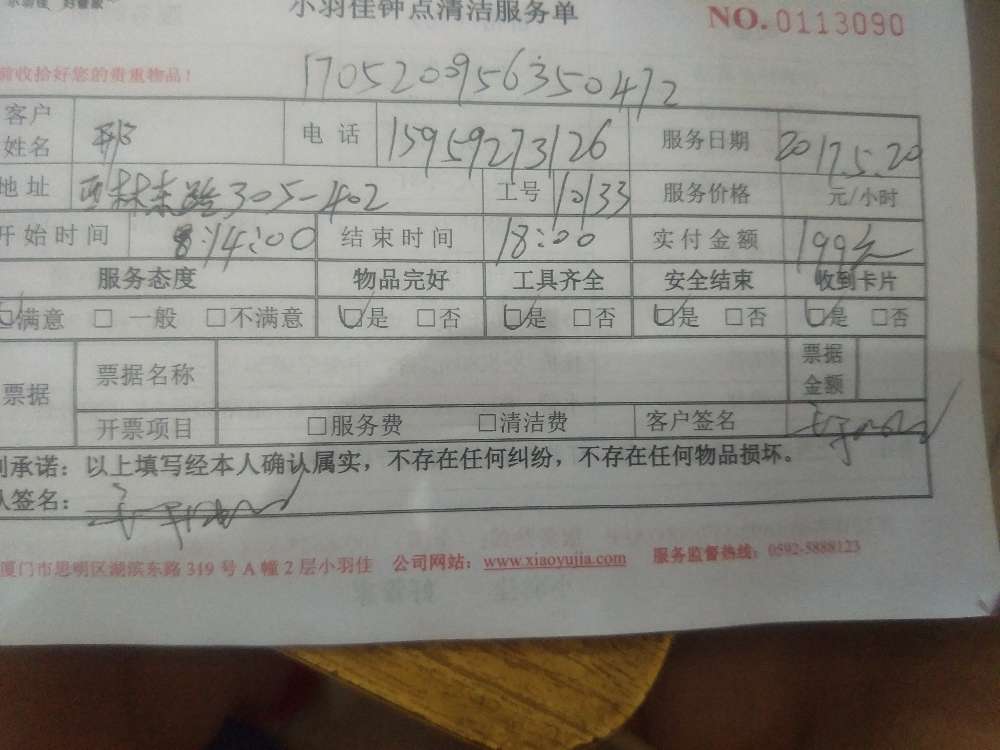 小羽佳 好管家
小羽佳钟点清洁服务单
NO. 0113090
请收拾好您的贵重物品！
170520956350472
客户姓名 电话 15959273126 服务日期 2017.5.20
地址 西林东路305-402 工号 10133 服务价格 元/小时
开始时间 14:00 结束时间 18:00 实付金额 199元
服务态度 物品完好 工具齐全 安全结束 收到卡片
☑满意 □一般 □不满意 ☑是 □否 ☑是 □否 ☑是 □否 ☑是 □否
票据 票据名称 票据金额
开票项目 □服务费 □清洁费 客户签名
承诺：以上填写经本人确认属实，不存在任何纠纷，不存在任何物品损坏。
签名：
厦门市思明区湖滨东路 319 号 A 幢 2 层小羽佳 公司网站：www.xiaoyujia.com 服务监督热线：0592-5888123